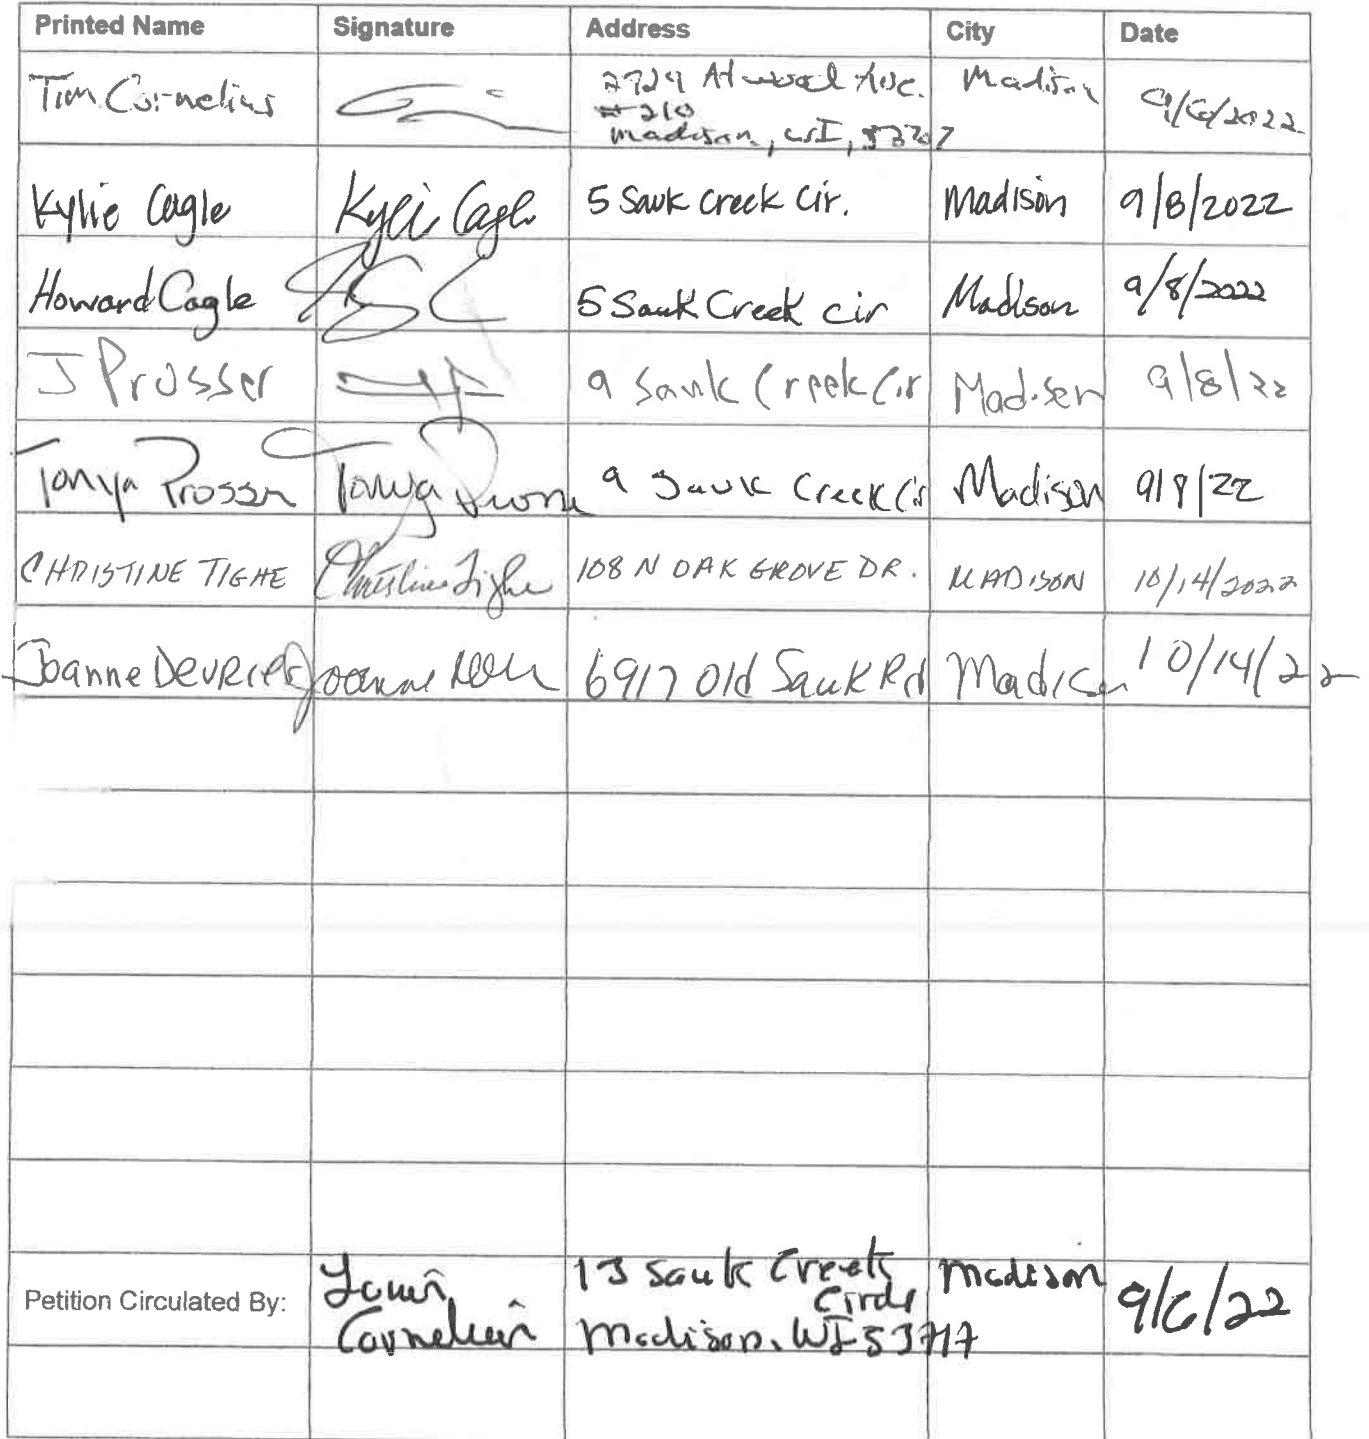 Printed Name Signature Address City Date
Tim Cornelius 2729 Atwood Ave. Madison 9/6/2022
#210
Madison, WI, 53707
Kylie Cagle Kylie Cagle 5 Sauk Creek Cir. Madison 9/8/2022
Howard Cagle 5 Sauk Creek cir Madison 9/8/2022
J Prosser 9 Sauk Creek Cir Madison 9/8/22
Tonya Prosser Tonya 9 Sauk Creek Cir Madison 9/8/22
CHRISTINE TIGHE Christine Tighe 108 N OAK GROVE DR. MADISON 10/14/2022
Joanne DeVRIES Joanne 6917 Old Sauk Rd Madison 10/14/22
Petition Circulated By: Cornelius 13 Sauk Creek Madison 9/6/22
Circle
Madison, WI 53717